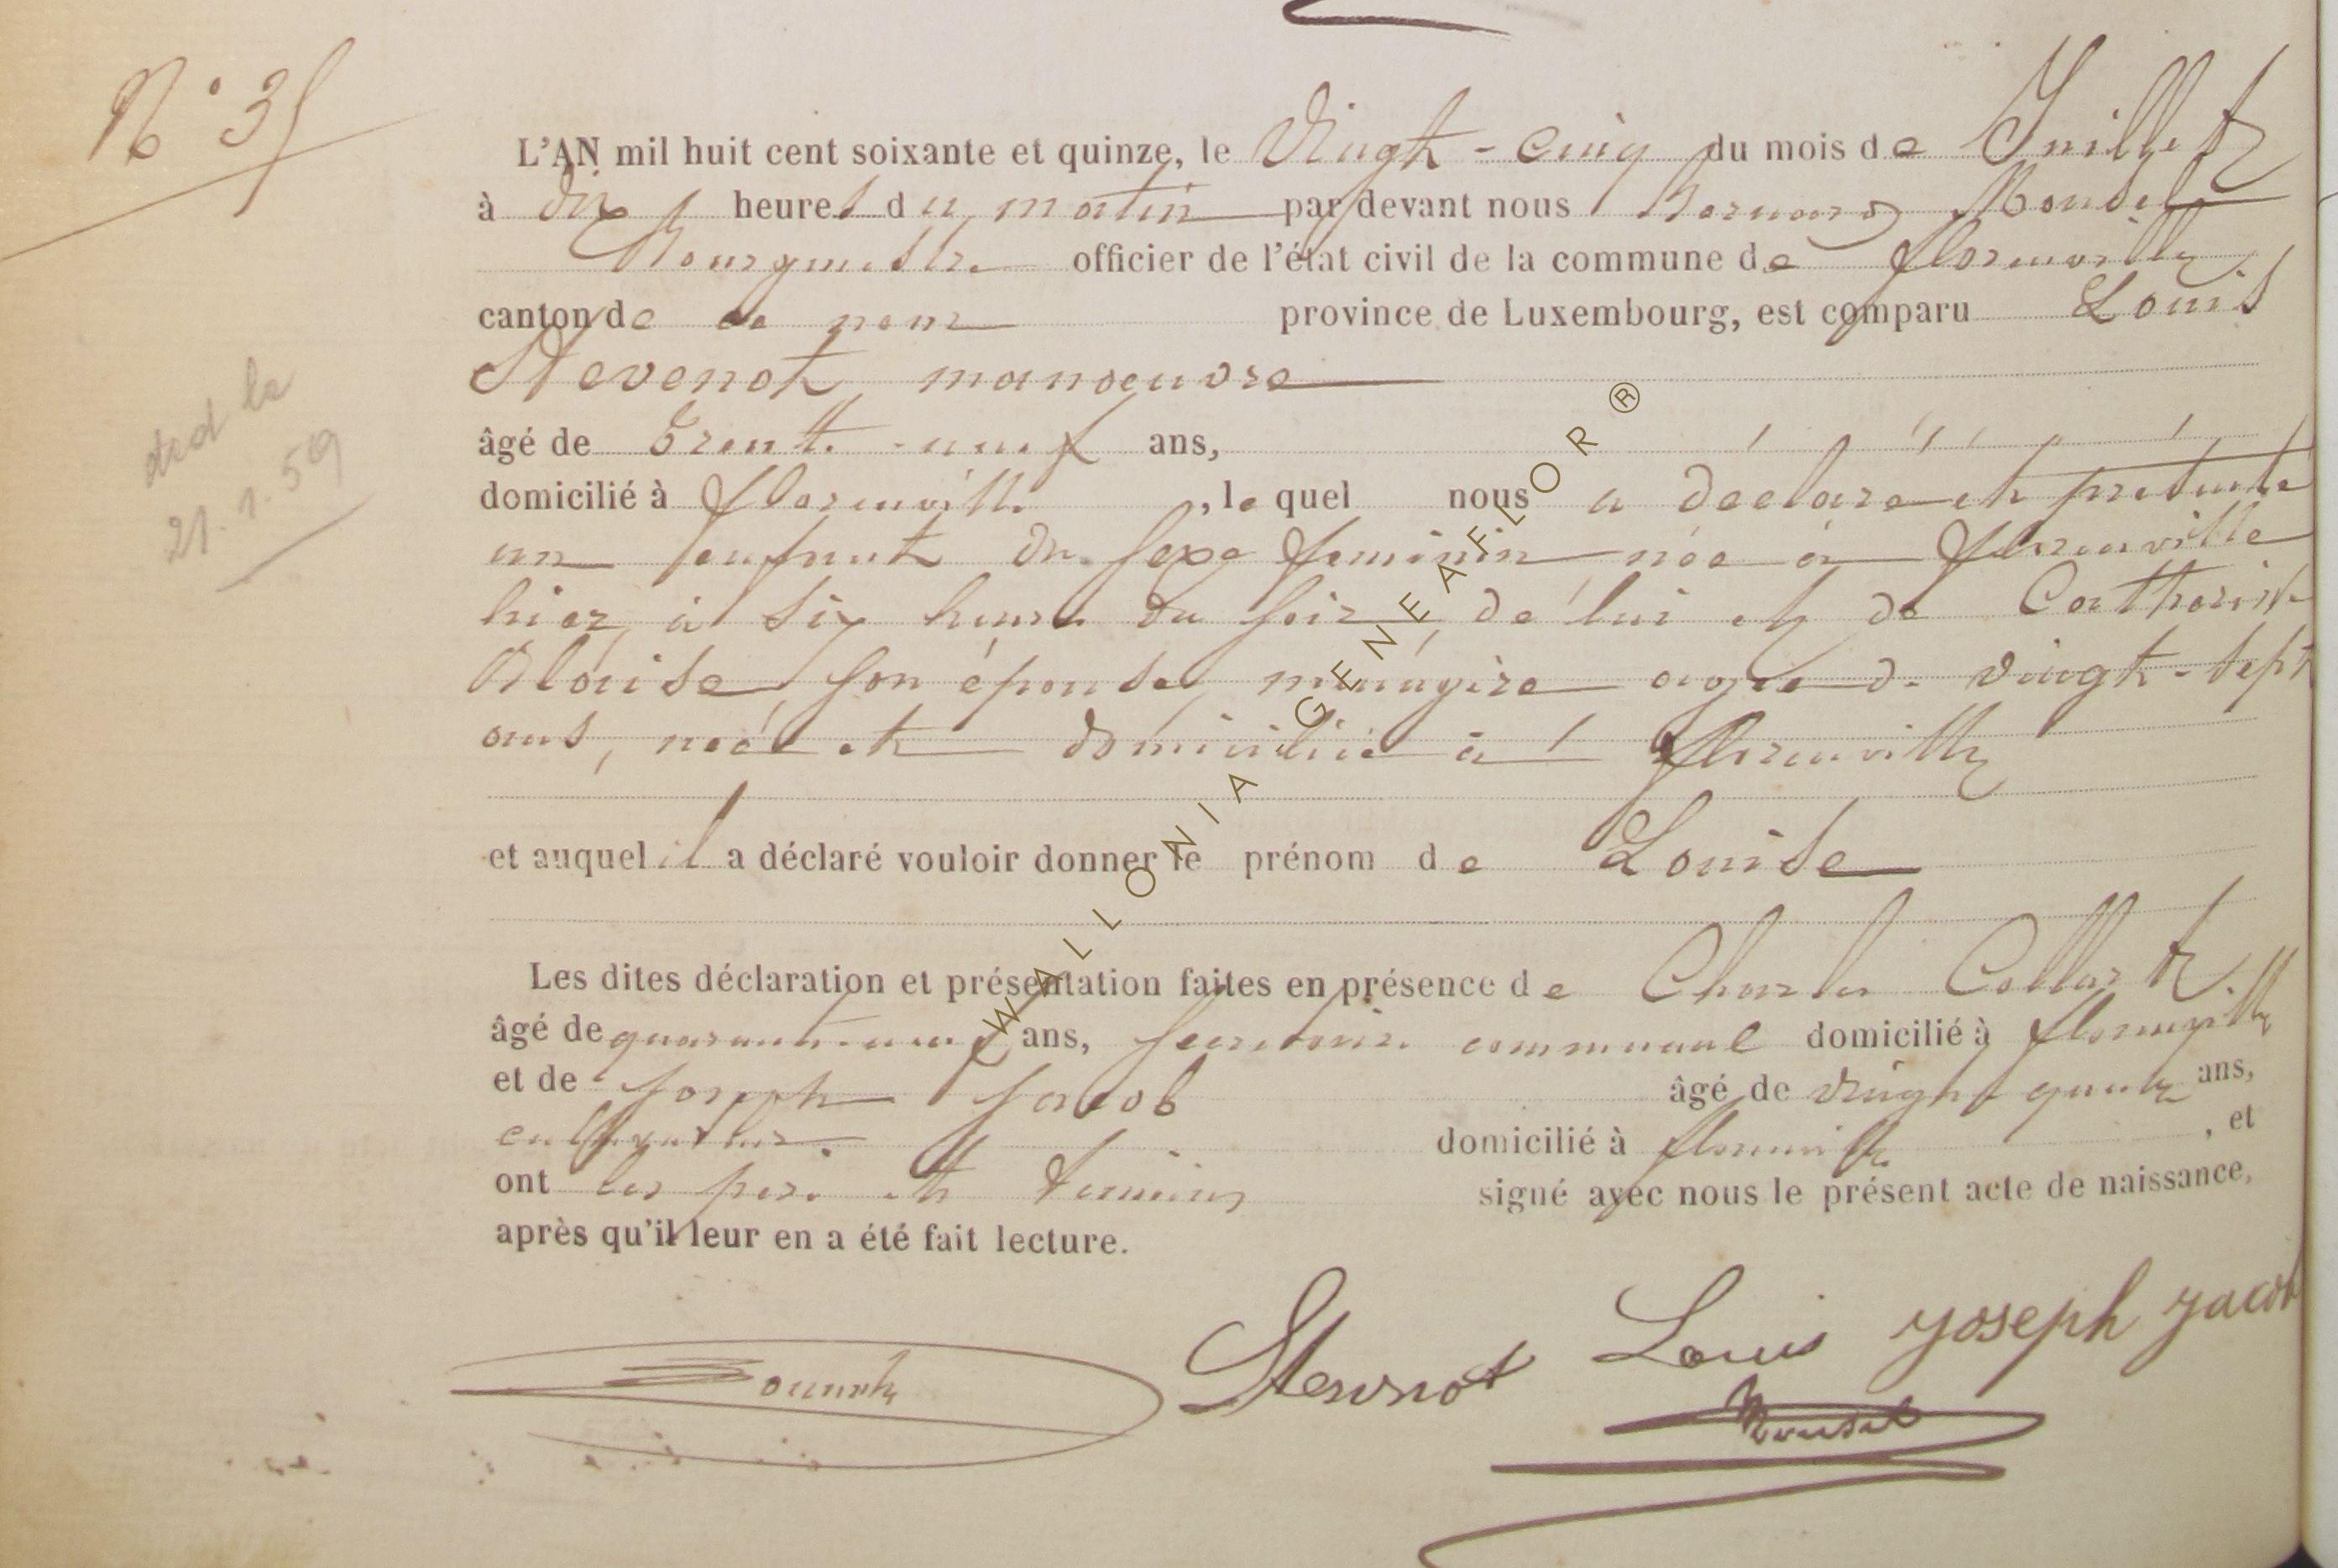 N° 35
L'AN mil huit cent soixante et quinze, le Vingt-cinq du mois de Juillet
à dix heures du matin par devant nous Bernard Monsel
Bourgmestre officier de l'état civil de la commune de florenville
canton de ce nom province de Luxembourg, est comparu Louis
Stevenot, manoeuvre
âgé de trente-neuf ans,
domicilié à florenville, le quel nous a déclaré et présenté
un enfant du sexe feminin née à florenville
hier, à six heures du soir, de lui et de Catherine
Blaise, son épouse, ménagère agée de vingt-sept
ans, née et domiciliée à florenville
et auquel il a déclaré vouloir donner le prénom de Louise
Les dites déclaration et présentation faites en présence de Charles Collart
âgé de quarante-neuf ans, secrétaire communal domicilié à florenville
et de Joseph Jacob âgé de vingt quatre ans,
cultivateur domicilié à florenville, et
ont les père et témoins signé avec nous le présent acte de naissance,
après qu'il leur en a été fait lecture.
Stevenot Louis Joseph Jacob
Monsel
21.1.59
WALLONIA GENEAFLOR ®